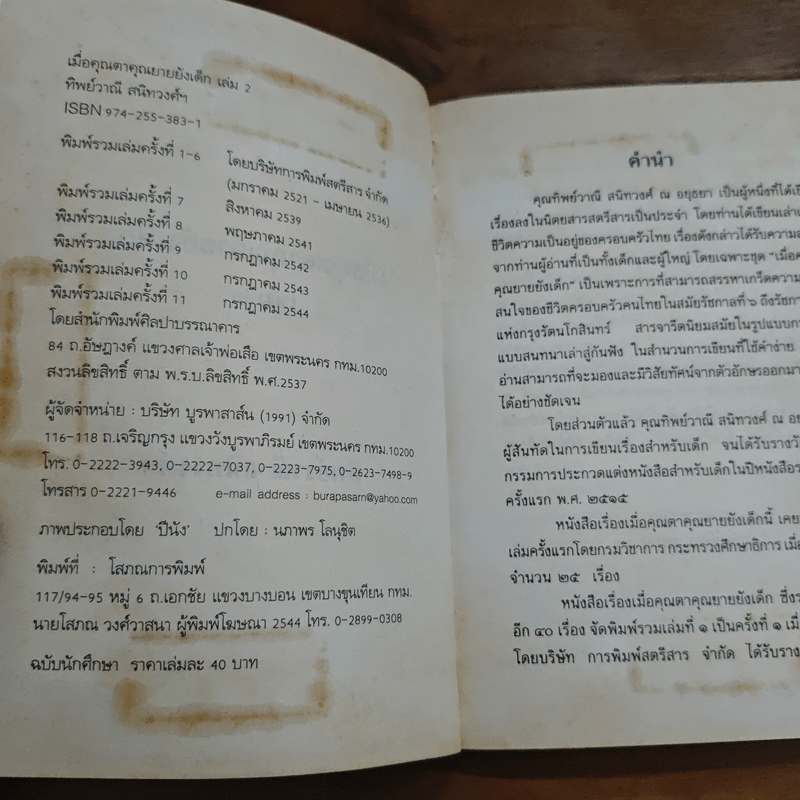 เมื่อคุณตาคุณยายยังเด็ก เล่ม 2
ทิพย์วาณี สนิทวงศ์ฯ
ISBN 974-255-383-1
พิมพ์รวมเล่มครั้งที่ 1-6 โดยบริษัทการพิมพ์สตรีสาร จำกัด
(มกราคม 2521 - เมษายน 2536)
พิมพ์รวมเล่มครั้งที่ 7 สิงหาคม 2539
พิมพ์รวมเล่มครั้งที่ 8 พฤษภาคม 2541
พิมพ์รวมเล่มครั้งที่ 9 กรกฎาคม 2542
พิมพ์รวมเล่มครั้งที่ 10 กรกฎาคม 2543
พิมพ์รวมเล่มครั้งที่ 11 กรกฎาคม 2544
โดยสำนักพิมพ์ศิลปาบรรณาคาร
84 ถ.อัษฎางค์ แขวงศาลเจ้าพ่อเสือ เขตพระนคร กทม.10200
สงวนลิขสิทธิ์ ตาม พ.ร.บ.ลิขสิทธิ์ พ.ศ.2537
ผู้จัดจำหน่าย : บริษัท บูรพาสาส์น (1991) จำกัด
116-118 ถ.เจริญกรุง แขวงวังบูรพาภิรมย์ เขตพระนคร กทม.10200
โทร. 0-2222-3943, 0-2222-7037, 0-2223-7975, 0-2623-7498-9
โทรสาร 0-2221-9446 e-mail address : burapasarn@yahoo.com
ภาพประกอบโดย 'ปีนัง' ปกโดย : นภาพร โลนุชิต
พิมพ์ที่ : โสภณการพิมพ์
117/94-95 หมู่ 6 ถ.เอกชัย แขวงบางบอน เขตบางขุนเทียน กทม.
นายโสภณ วงศ์วาสนา ผู้พิมพ์โฆษณา 2544 โทร. 0-2899-0308
ฉบับนักศึกษา ราคาเล่มละ 40 บาท
คำนำ
คุณทิพย์วาณี สนิทวงศ์ ณ อยุธยา เป็นผู้หนึ่งที่ได้เขี
เรื่องลงในนิตยสารสตรีสารเป็นประจำ โดยท่านได้เขียนเล่าเ
ชีวิตความเป็นอยู่ของครอบครัวไทย เรื่องดังกล่าวได้รับความส
จากท่านผู้อ่านที่เป็นทั้งเด็กและผู้ใหญ่ โดยเฉพาะชุด "เมื่อค
คุณยายยังเด็ก" เป็นเพราะการที่สามารถสรรหาเกร็ดความ
สนใจของชีวิตครอบครัวคนไทยในสมัยรัชกาลที่ ๖ ถึงรัชกา
แห่งกรุงรัตนโกสินทร์ สารจารีตนิยมสมัยในรูปแบบกา
แบบสนทนาเล่าสู่กันฟัง ในสำนวนการเขียนที่ใช้คำง่าย
อ่านสามารถที่จะมองและมีวิสัยทัศน์จากตัวอักษรออกมา
ได้อย่างชัดเจน
โดยส่วนตัวแล้ว คุณทิพย์วาณี สนิทวงศ์ ณ อยุ
ผู้สันทัดในการเขียนเรื่องสำหรับเด็ก จนได้รับรางวั
กรรมการประกวดแต่งหนังสือสำหรับเด็กในปีหนังสือร
ครั้งแรก พ.ศ. ๒๕๑๕
หนังสือเรื่องเมื่อคุณตาคุณยายยังเด็กนี้ เคย
เล่มครั้งแรกโดยกรมวิชาการ กระทรวงศึกษาธิการ เมื่
จำนวน ๒๕ เรื่อง
หนังสือเรื่องเมื่อคุณตาคุณยายยังเด็ก ซึ่งร
อีก ๔๐ เรื่อง จัดพิมพ์รวมเล่มที่ ๑ เป็นครั้งที่ ๑ เมื่
โดยบริษัท การพิมพ์สตรีสาร จำกัด ได้รับราง